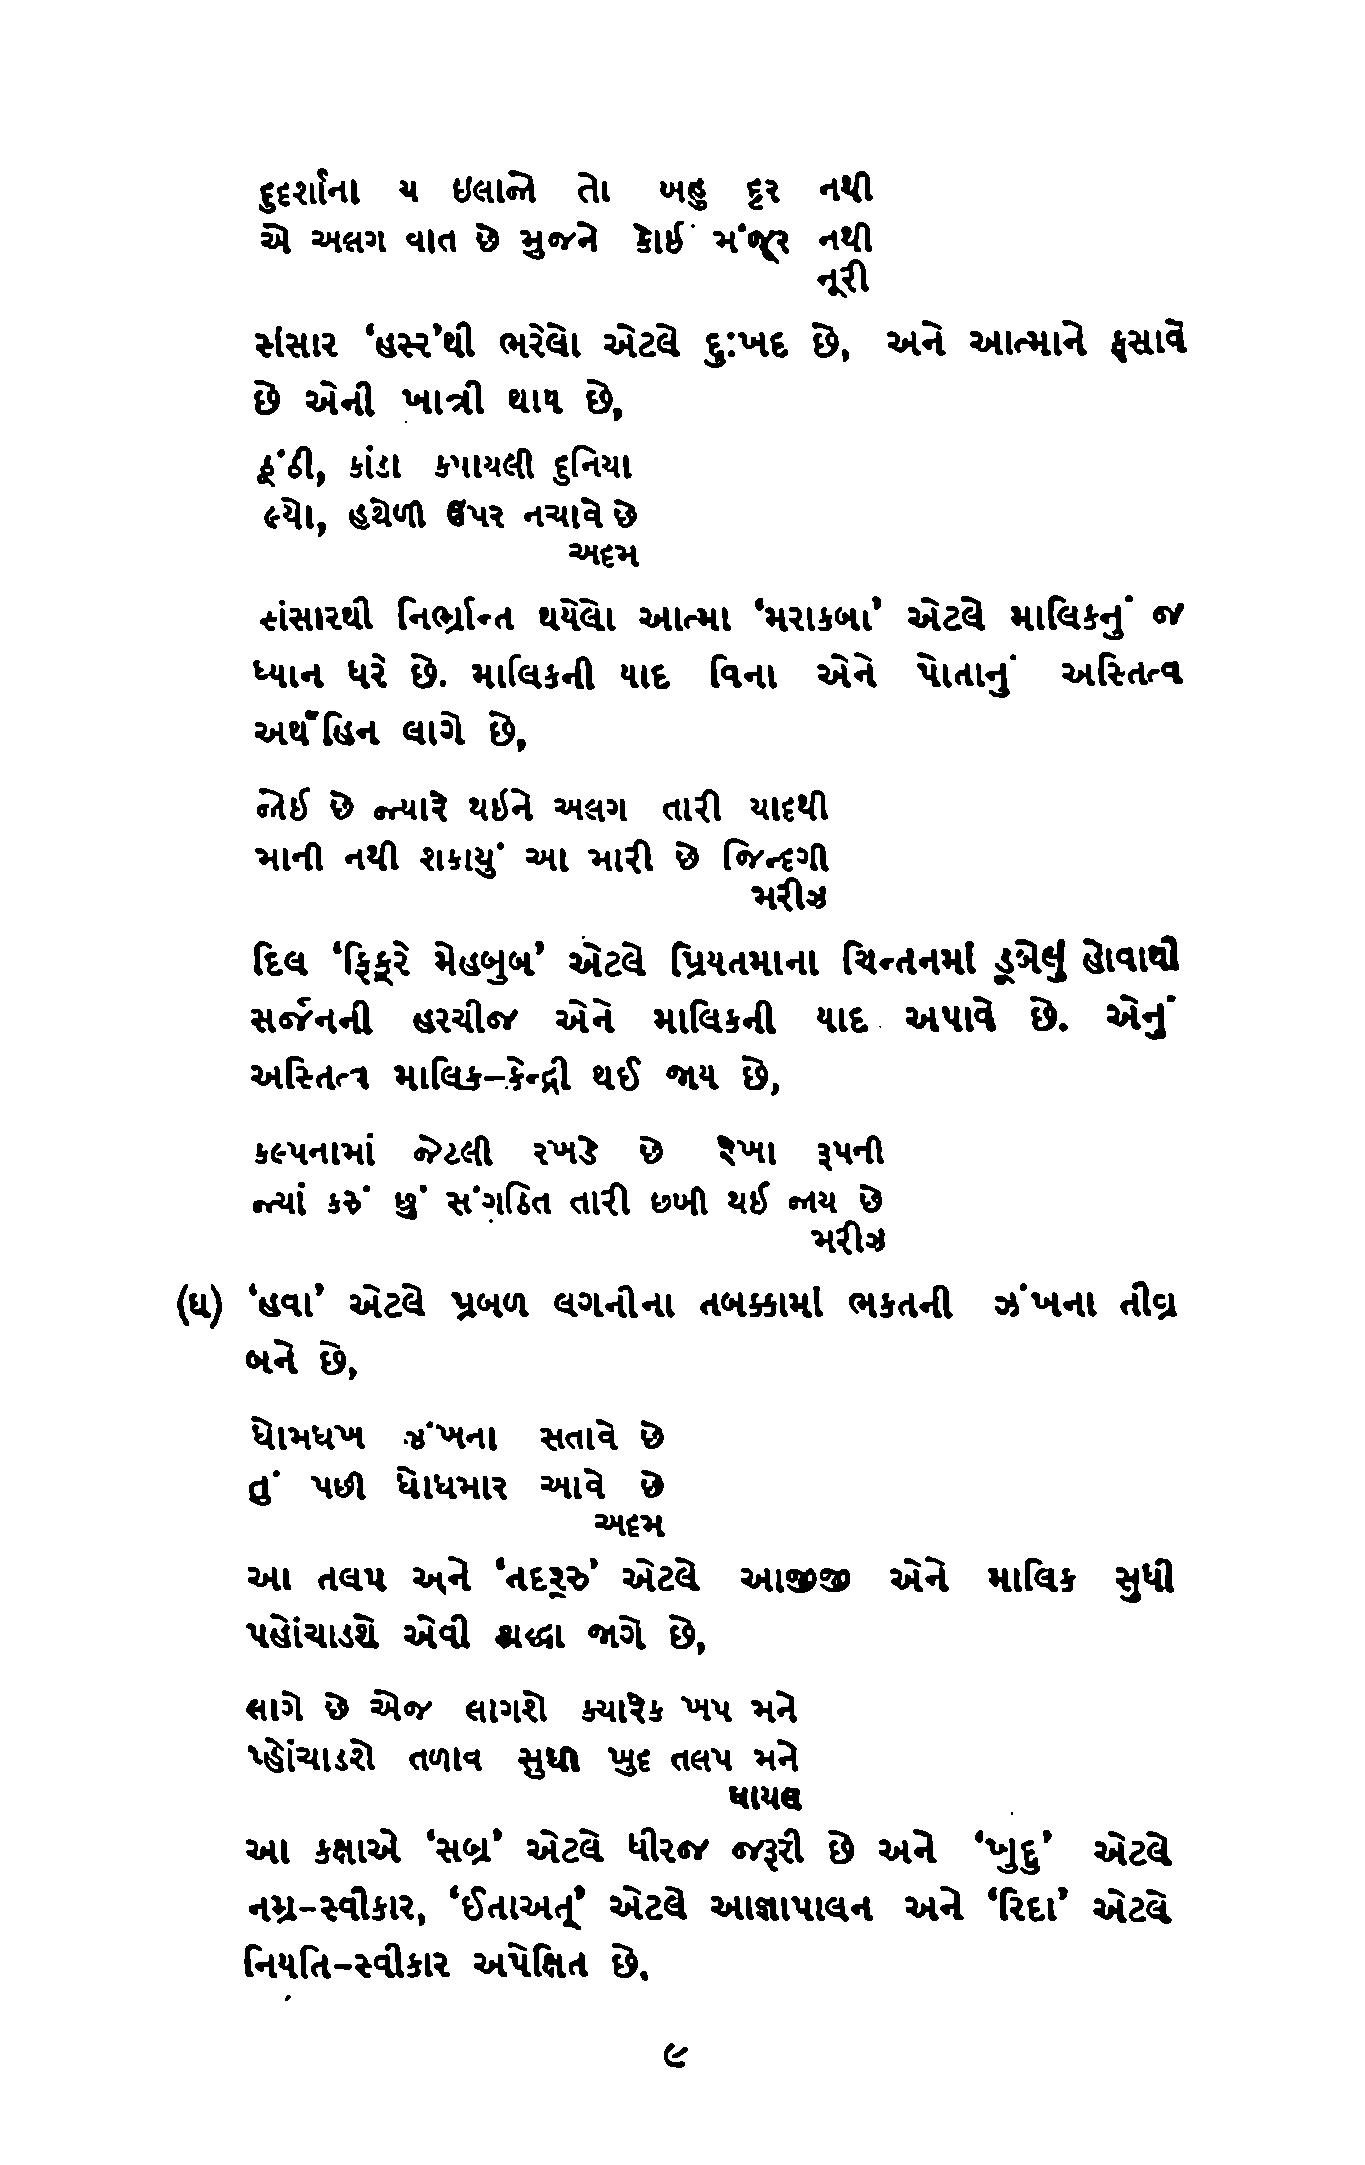 દુર્દશાના ય ઇલાજો તો બહુ દૂર નથી
એ અલગ વાત છે મુજને કોઈ મંજૂર નથી
નૂરી
સંસાર ‘હસ્ર’થી ભરેલો એટલે દુઃખદ છે, અને આત્માને ફસાવે
છે એની ખાત્રી થાય છે,
ઠૂંઠી, કાંડા કપાયલી દુનિયા
લ્યો, હથેળી ઉપર નચાવે છે
અદમ
સંસારથી નિર્ભ્રાન્ત થયેલો આત્મા ‘મરાકબા’ એટલે માલિકનું જ
ધ્યાન ધરે છે. માલિકની યાદ વિના એને પોતાનું અસ્તિત્વ
અર્થહિન લાગે છે,
જોઈ છે જ્યારે થઈને અલગ તારી યાદથી
માની નથી શકાયું આ મારી છે જિન્દગી
મરીઝ
દિલ ‘ફિકૂરે મેહબુબ’ એટલે પ્રિયતમાના ચિન્તનમાં ડૂબેલું હોવાથી
સર્જનની હરચીજ એને માલિકની યાદ અપાવે છે. એનું
અસ્તિત્વ માલિક-કેન્દ્રી થઈ જાય છે,
કલ્પનામાં જેટલી રખડે છે રેખા રૂપની
જ્યાં કરું છું સંગઠિત તારી છબી થઈ જાય છે
મરીઝ
(ઘ) ‘હવા’ એટલે પ્રબળ લગનીના તબક્કામાં ભકતની ઝંખના તીવ્ર
બને છે,
ધોમધખ ઝંખના સતાવે છે
તું પછી ધોધમાર આવે છે
અદમ
આ તલપ અને ‘તદરૂરુ’ એટલે આજીજી એને માલિક સુધી
પહોંચાડશે એવી શ્રદ્ધા જાગે છે,
લાગે છે એજ લાગશે ક્યારેક ખપ મને
પ્હોંચાડશે તળાવ સુધી ખુદ તલપ મને
ઘાયલ
આ કક્ષાએ ‘સબ્ર’ એટલે ધીરજ જરૂરી છે અને ‘ખુદુ’ એટલે
નમ્ર-સ્વીકાર, ‘ઈતાઅત્’ એટલે આજ્ઞાપાલન અને ‘રિદા’ એટલે
નિયતિ-સ્વીકાર અપેક્ષિત છે.
૯